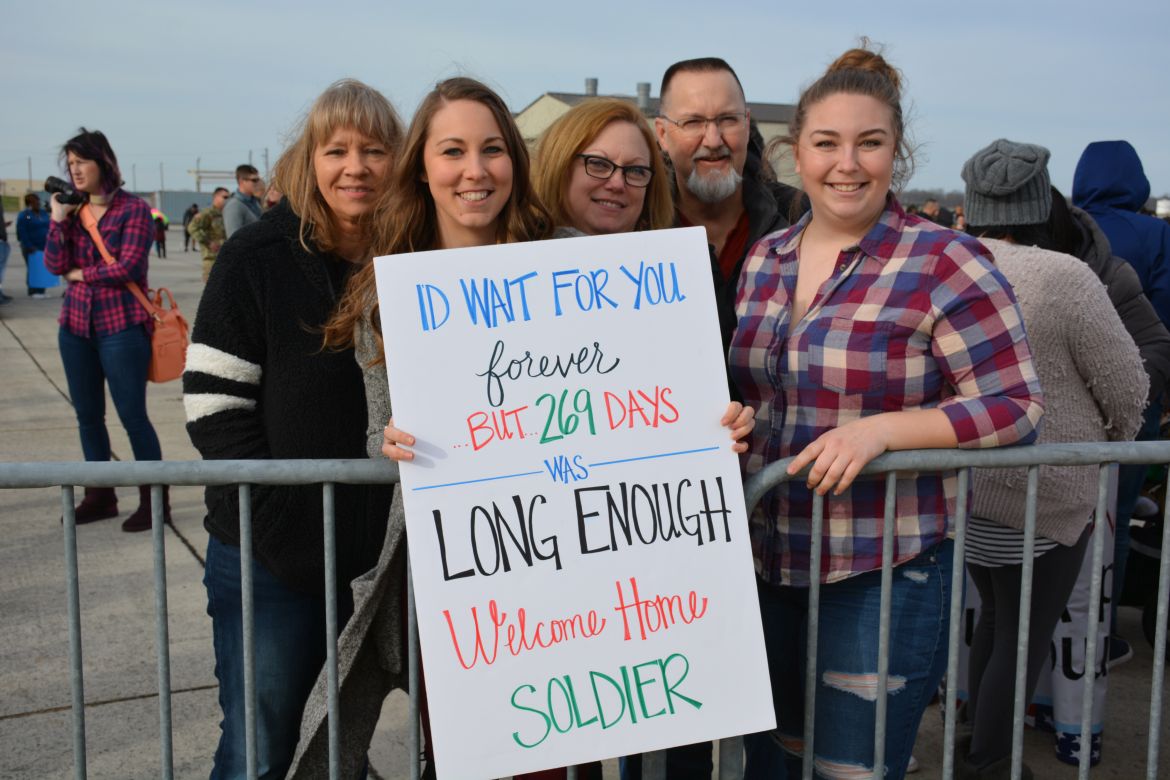 I'D WAIT FOR YOU
forever
...BUT...269 DAYS
WAS
LONG ENOUGH
Welcome Home
SOLDIER